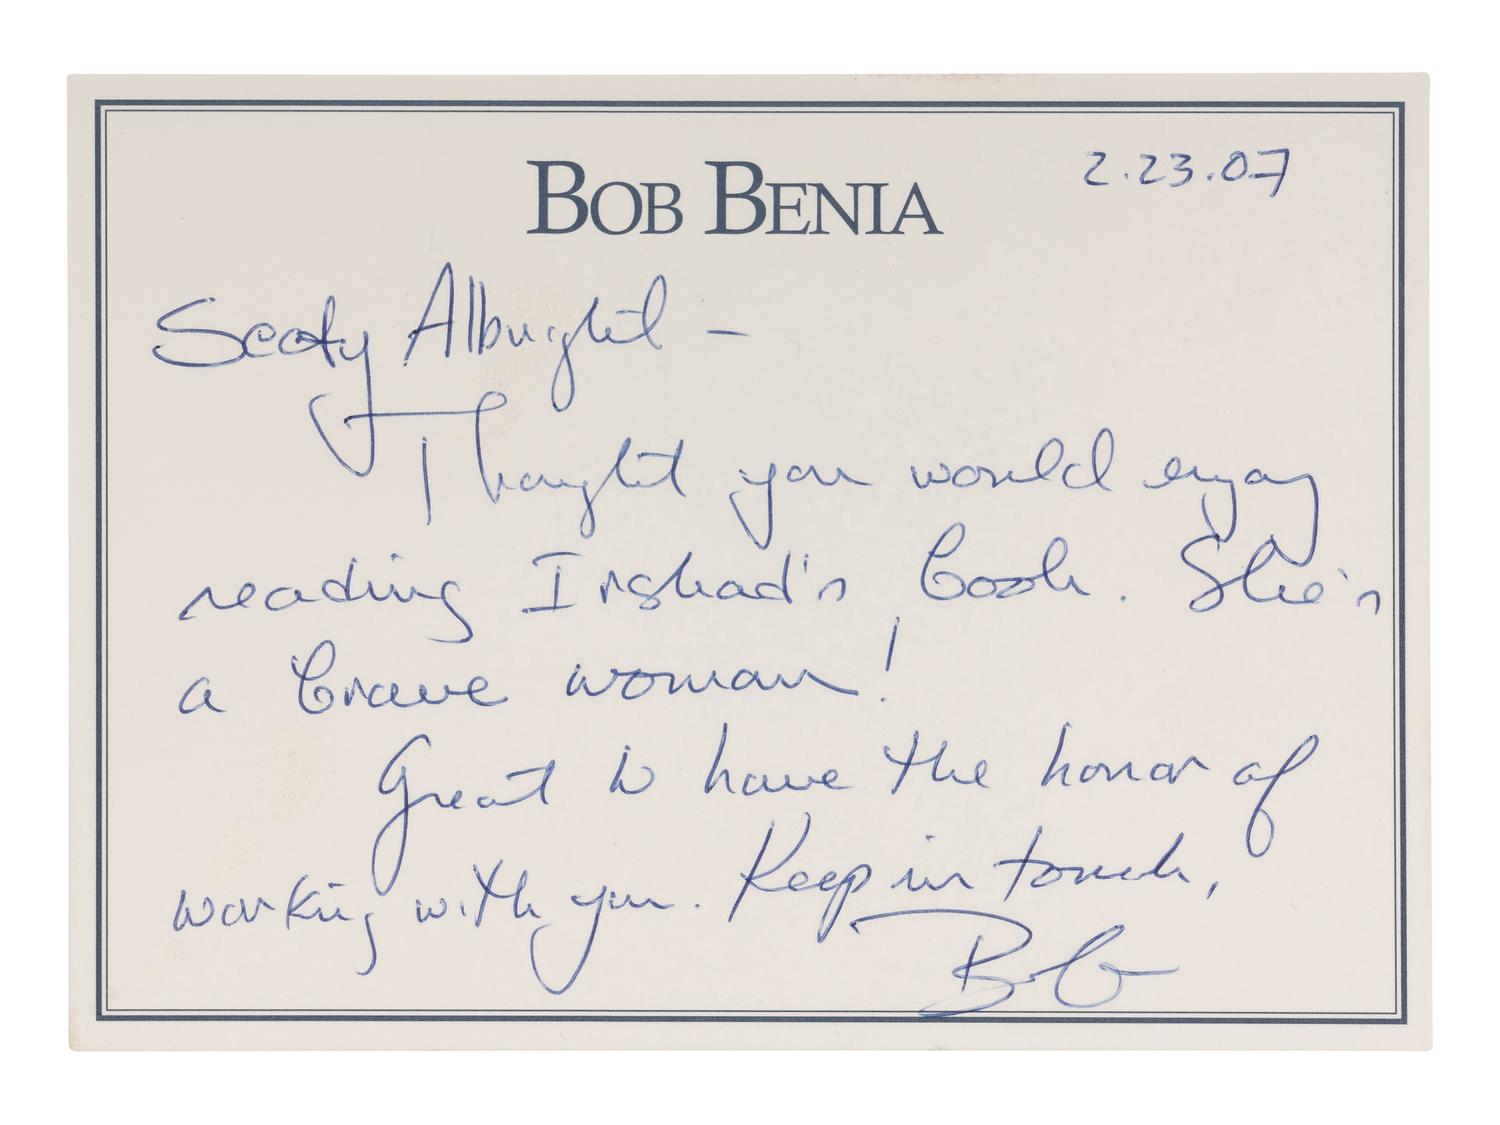 BOB BENIA
2.23.07
Secty Albright -
Thought you would enjoy
reading Irshad's book. She's
a brave woman!
Great to have the honor of
working with you. Keep in touch,
Bob